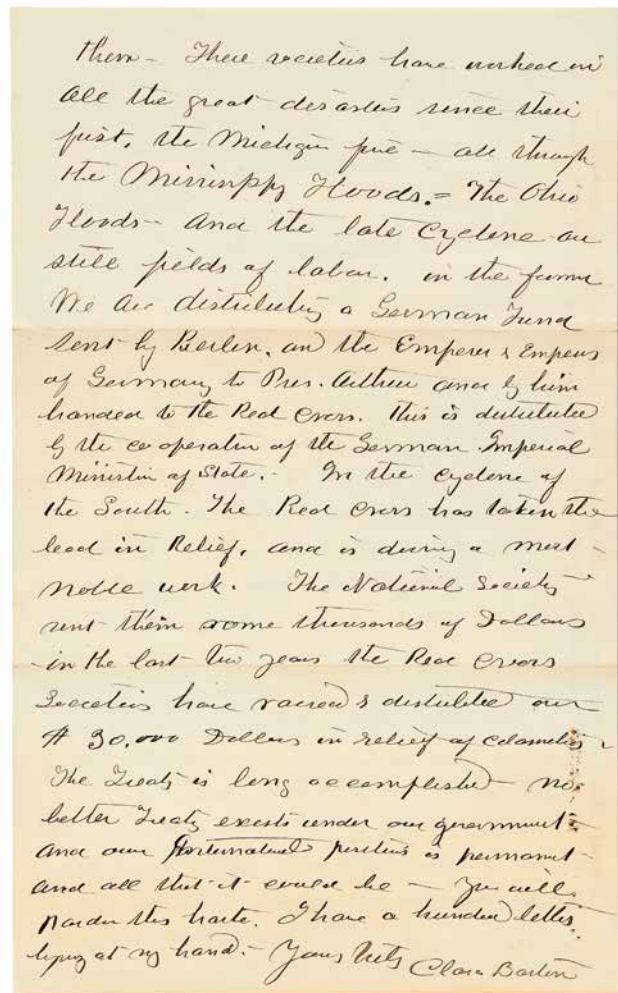 them - These societies have worked in
all the great disasters since their
first, the Michigan fire - all through
the Mississippy Floods. = The Ohio
Floods - And the late Cyclone - are
still fields of labor. in the former
We are distributing a German Fund
sent by Berlin, and the Emperor & Empress
of Germany to Pres. Arthur and by him
handed to the Red Cross. this is distributed
by the co operation of the German Imperial
Ministers of State. - In the Cyclone of
the South - The Red Cross has taken the
lead in Relief, and is doing a most -
noble work. The National Society
sent them some thousands of Dollars
in the last two years the Red Cross
Societies have raised & distributed over
$ 30,000 Dollars in relief of calamities -
The Treaty is long accomplished - no
better Treaty exists under our government -
and our International position is permanent -
and all that it could be - You will
pardon this haste. I have a hundred letters
lying at my hand. - Yours Clara Barton